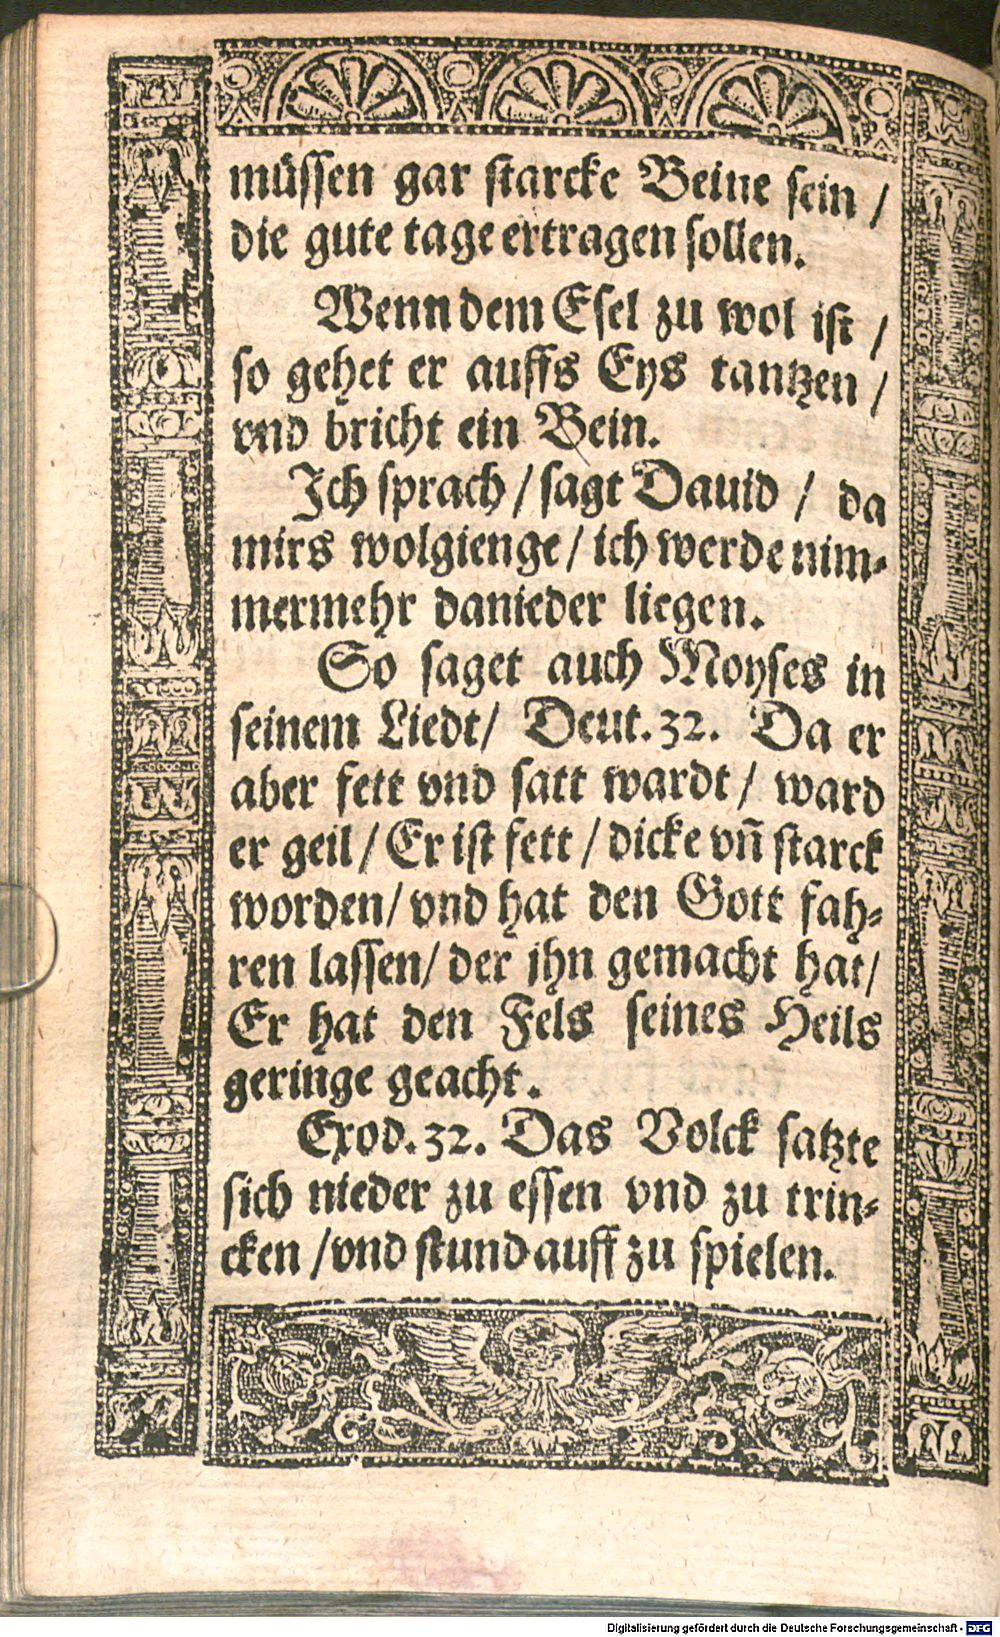 müssen gar starcke Beine sein /
die gute tage ertragen sollen.
Wenn dem Esel zu wol ist /
so gehet er auffs Eys tantzen /
vnd bricht ein Bein.
Ich sprach / sagt Dauid / da
mirs wolgienge / ich werde nim-
mermehr danieder liegen.
So saget auch Moyses in
seinem Liedt / Deut. 32. Da er
aber fett vnd satt wardt / ward
er geil / Er ist fett / dicke vñ starck
worden / vnd hat den Gott fah-
ren lassen / der jhn gemacht hat /
Er hat den Fels seines Heils
geringe geacht.
Exod. 32. Das Volck satzte
sich nieder zu essen vnd zu trin-
cken / vnd stund auff zu spielen.
Digitalisierung gefördert durch die Deutsche Forschungsgemeinschaft - DFG